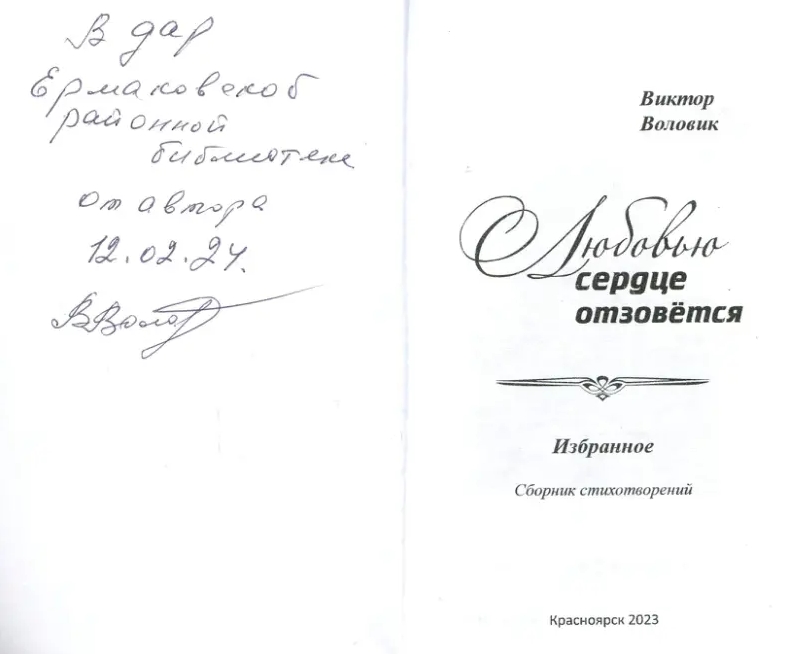 В дар
Ермаковской
районной
библиотеке
от автора
12.02.24.
ВВолов
Виктор
Воловик
Любовью
сердце
отзовётся
Избранное
Сборник стихотворений
Красноярск 2023